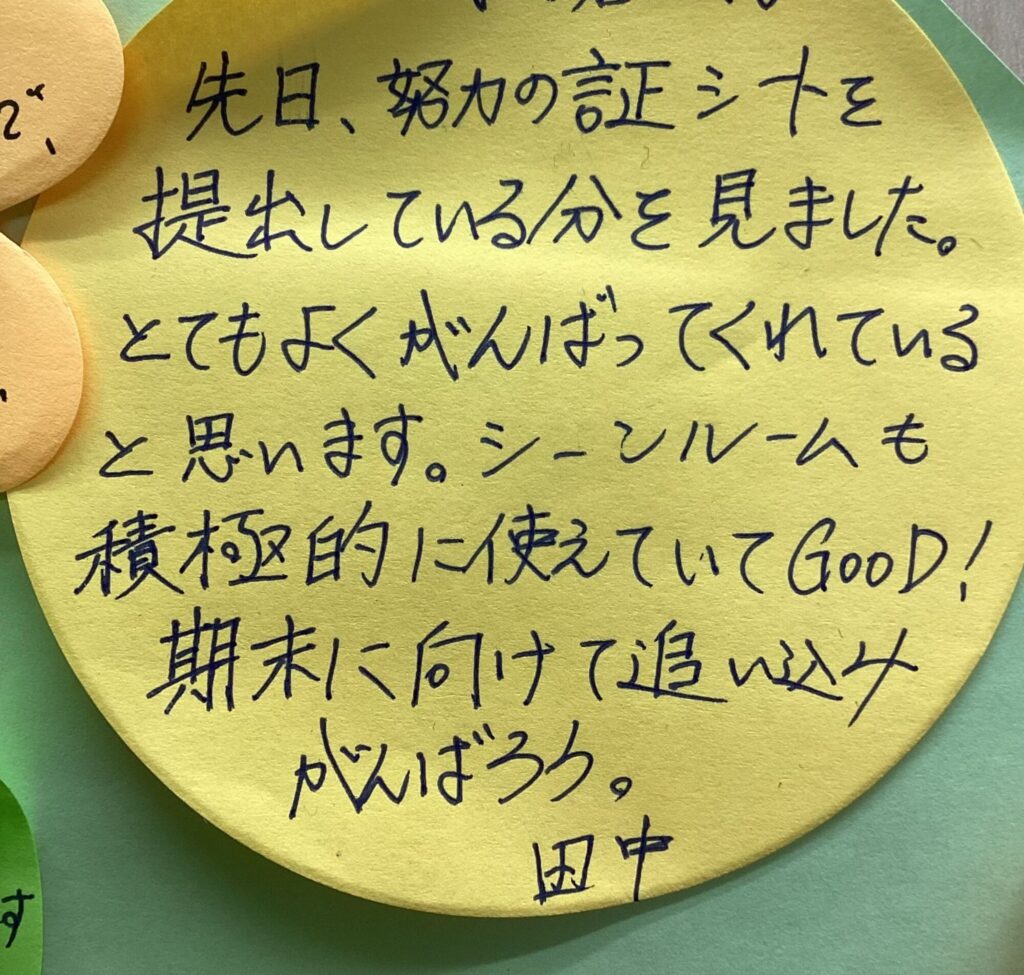 先日、努力の証シートを
提出している分を見ました。
とてもよくがんばってくれている
と思います。シーンルームも
積極的に使えていてGOOD!
期末に向けて追い込み
がんばろう。
田中
す